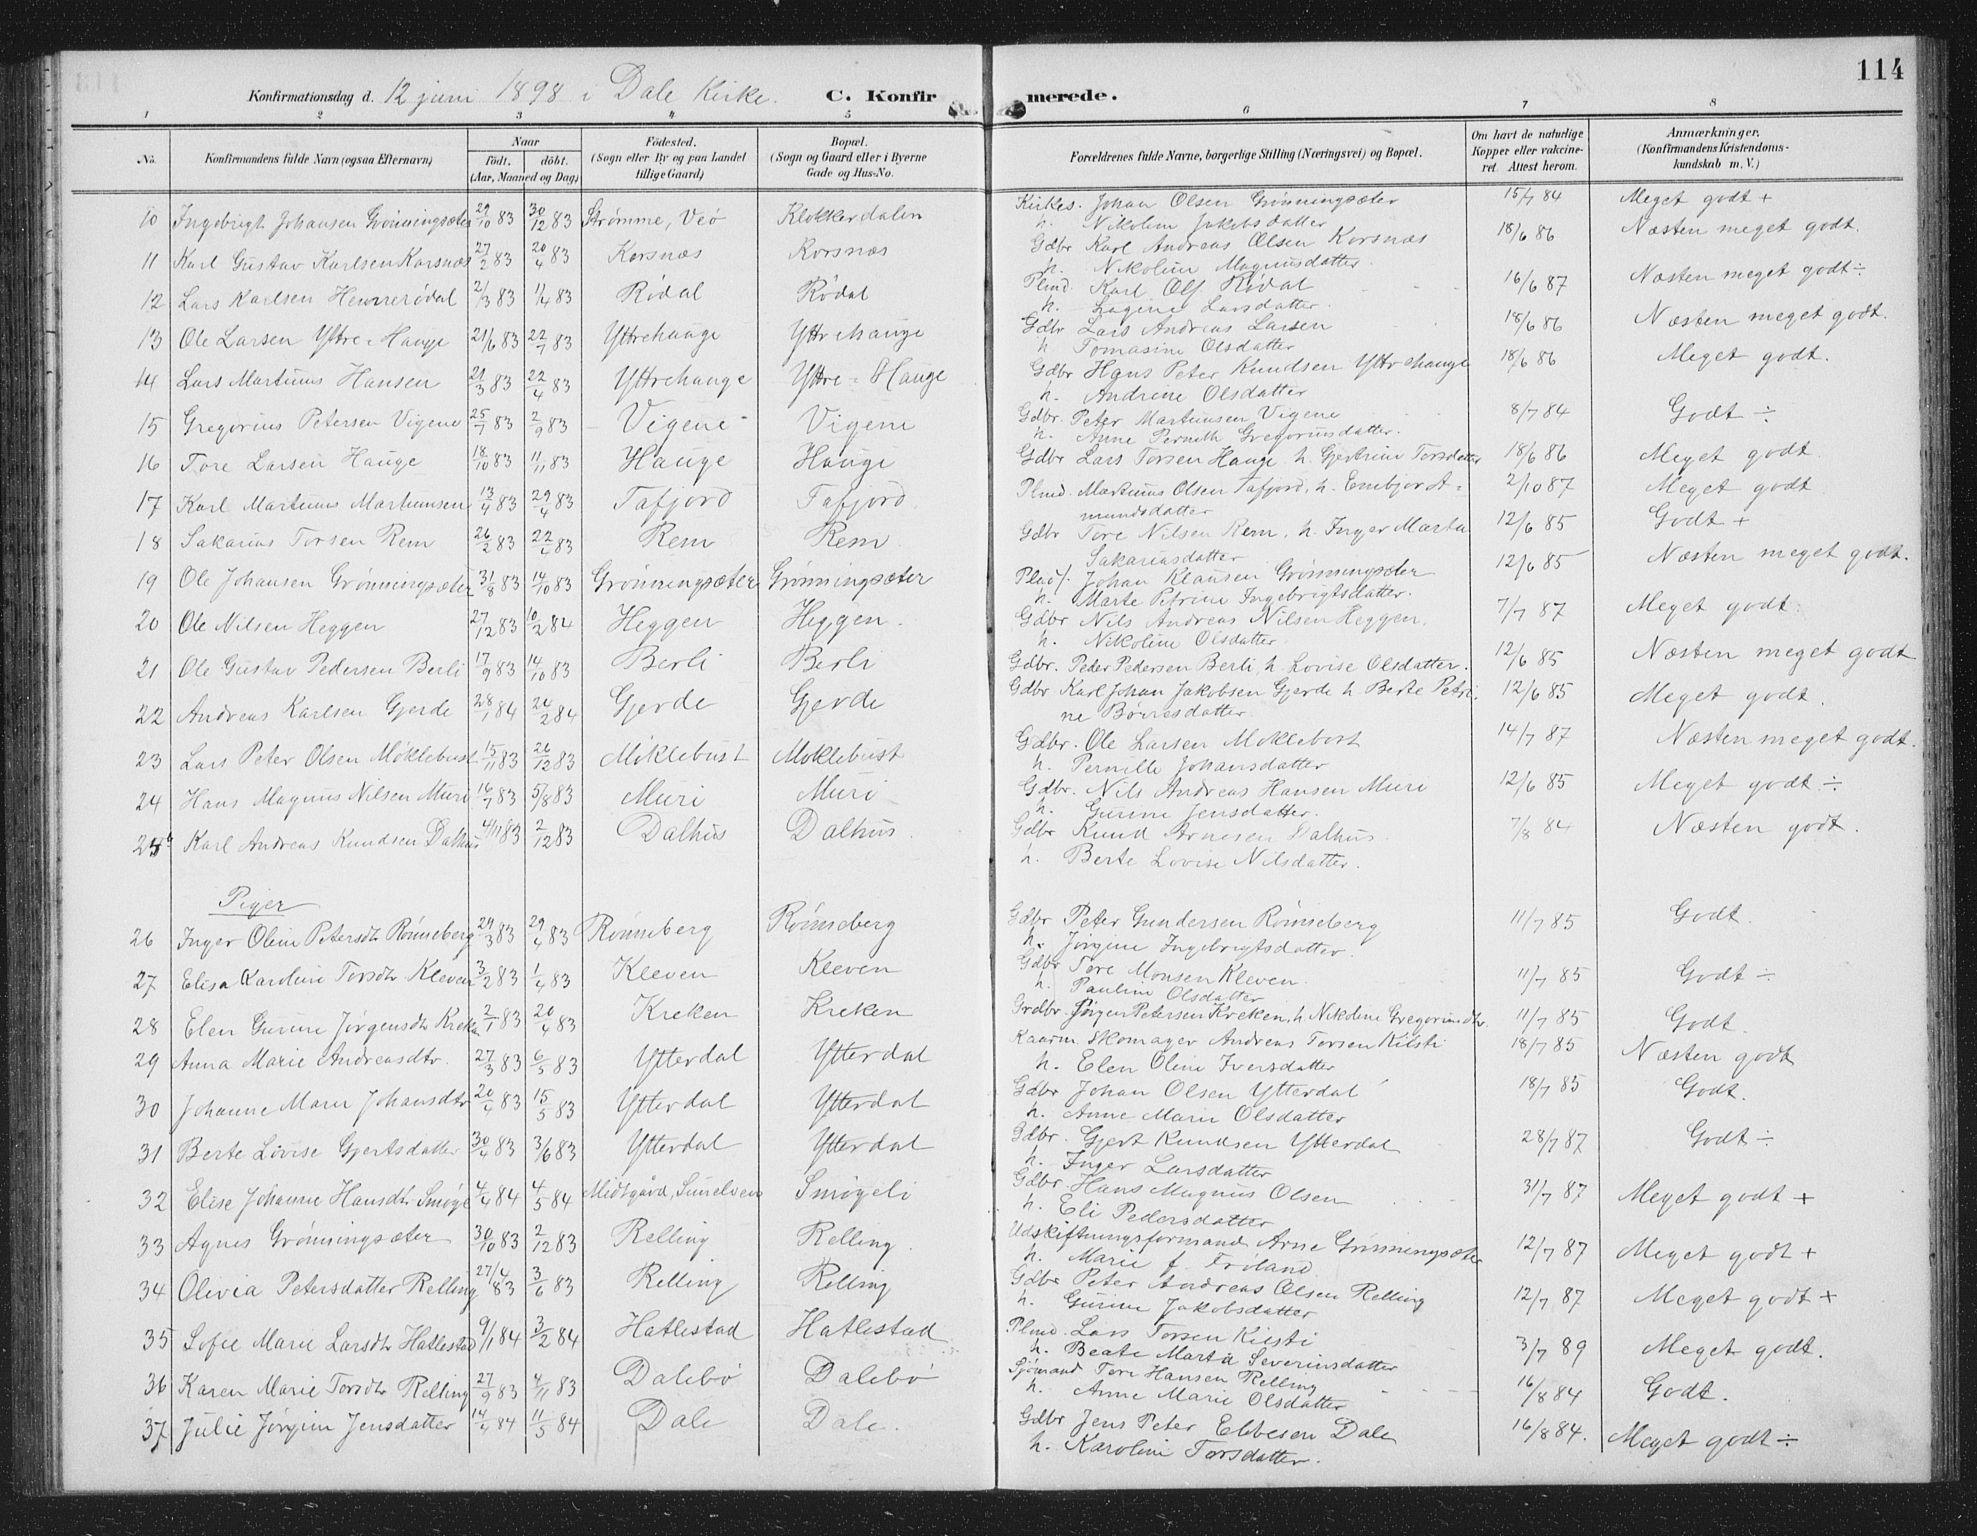 114
Konfirmationsdag d. 12 juni 1898 i Dale Kirke. C. Konfirmerede.
1 2 3 4 5 6 7 8
No. Konfirmandens fulde Navn (ogsaa Efternavn) Naar født. døbt. (Aar, Maaned og Dag) Fødested. (Sogn eller By og paa Landet tillige Gaard) Bopæl. (Sogn og Gaard eller i Byerne Gade og Hus-No. Forældrenes fulde Navne, borgerlige Stilling (Næringsvei) og Bopæl. Om havt de naturlige Kopper eller vaccineret. Attest herom. Anmærkninger. (Konfirmandens Kristendomskundskab m. V.)
10 Ingebrigt Johansen Grønningsæter 29/10 83 30/12 83 Strømme, Veø Klokkerdalen Kirkes. Johan Olsen Grønningsæter 15/7 84 Meget godt +
h. Nikoline Jakobsdatter
11 Karl Gustav Karlsen Korsnæs 27/2 83 20/4 83 Korsnæs Korsnæs Gdbr Karl Andreas Olsen Korsnæs 18/6 86 Næsten meget godt.
h. Nikoline Magnusdatter
12 Lars Karlsen Rødal 21/3 83 11/4 83 Rødal Rødal Plmd. Karl Ols. Rødal 16/6 87 Næsten meget godt ÷
h. Larsdatter.
13 Ole Larsen Yttre-Hauge 21/6 83 22/7 83 Yttrehauge Yttrehauge Gdbr Lars Andreas Larsen 18/6 86 Næsten meget godt.
h Tomasine Olsdatter
14 Lars Martinus Hansen 29/3 83 22/4 83 Yttrehauge Yttre-Hauge Gdbr Hans Peter Knudsen Yttrehauge 18/6 86 Meget godt.
h. Andrine Olsdatter
15 Gregorius Petersen Vigene 25/7 83 2/9 83 Vigene Vigene Gdbr. Peter Martinusen Vigene 8/7 84 Godt ÷
h. Anne Gregoriusdatter.
16 Tore Larsen Hauge 18/10 83 11/11 83 Hauge Hauge Gdbr Lars Torsen Hauge h. Gjertrine Torsdatter 18/6 86 Meget godt.
17 Karl Martinus Martinusen 13/4 83 29/4 83 Tafjord Tafjord. Plmd. Martinus Olsen Tafjord, h. Embjør A- 2/10 87 Meget godt
mundsdatter
18 Sakarias Torsen Rem 26/2 83 83 Rem Rem Gdbr Tore Nilsen Rem, h. Inger Marta 12/6 85 Godt +
Sakariasdatter
19 Ole Johansen Grønningsæter 31/8 83 14/10 83 Grønningsæter Grønningsæter Johan Klausen Grønningsæter 12/6 85 Næsten meget godt.
h. Marte Petrine Ingebrigtsdatter.
20 Ole Nilsen Heggen 27/12 83 10/2 84 Heggen Heggen. Gdbr Nils Andreas Nilsen Heggen. 7/7 87 Meget godt.
h. Nikoline Olsdatter.
21 Ole Gustav Pedersen Berli 17/9 83 14/10 83 Berli Berli Gdbr. Peder Pedersen Berli h. Lovise Olsdatter. 12/6 85 Næsten meget godt
22 Andreas Karlsen Gjerde 28/1 84 24/2 84 Gjerde Gjerde Gdbr Karl Johan Jakobsen Gjerde h Berte Petri- 12/6 85 Meget godt.
ne Børresdatter
23 Lars Peter Olsen Møklebust 15/11 83 26/12 83 Møklebust Møklebust Gdbr. Ole Larsen Møklebost 14/7 87 Næsten meget godt.
h. Pernille Johansdatter
24 Hans Magnus Nilsen Muri 16/7 83 5/8 83 Muri Muri Gdbr. Nils Andreas Hansen Muri 12/6 85 Meget godt ÷
h. Gurine Jensdatter.
25 Karl Andreas Knudsen Dalhus 4/11 83 2/12 83 Dalhus Dalhus. Gdbr Knud Arnesen Dalhus 7/8 84 Næsten godt.
h. Berte Lovise Nilsdatter.
Piger
26 Inger Oline Petersdtr Rønneberg 29/3 83 29/4 83 Rønneberg Rønneberg Gdbr Peter Gundersen Rønneberg 11/7 85 Godt.
h. Jørgine Ingebrigtsdatter.
27 Elisa Karoline Torsdtr Kleven 3/2 83 1/4 83 Kleven Kleven Gdbr Tore Monsen Kleven. 11/7 85 Godt ÷
h. Pauline Olsdatter
28 Elen Gurine Jørgensdtr Kreken 2/1 83 20/4 83 Kreken Kreken Grdbr. Jørgen Petersen Kreken, h Nikoline Gregoriusdtr. 11/7 85 Godt.
29 Anna Marie Andreasdtr. 27/3 83 6/5 83 Ytterdal Ytterdal Kaarm. Skomager Andreas Torsen Kilsti 18/7 85 Næsten godt
h. Elen Oline Iversdatter
30 Johanne Marie Johansdtr 20/4 83 15/5 83 Ytterdal Ytterdal Gdbr Johan Olsen Ytterdal 18/7 85 Godt.
h. Anne Marie Olsdatter
31 Berte Lovise Gjertsdatter 30/4 83 3/6 83 Ytterdal Ytterdal Gdbr. Gjert Knudsen Ytterdal 28/7 87 Godt ÷
h. Inger Larsdatter
32 Elise Johanne Hansdtr Smøge 4/4 84 4/5 84 Midtgård, Sunelven Smøgeli Gdbr. Hans Magnus Olsen 31/7 87 Meget godt +
h. Eli Pedersdatter
33 Agnes Grønningsæter 30/10 83 2/12 83 Relling Relling. Udskiftningsformand Arne Grønningsæter 12/7 87 Meget godt +
h. Marie f. Frøland
34 Olivia Petersdatter Relling 27/4 83 3/6 83 Relling Relling Gdbr Peter Andreas Olsen Relling 12/7 87 Meget godt +
h. Gurine Jakobsdatter
35 Sofie Marie Larsdtr Hatlestad 9/1 84 3/2 84 Hatlestad Hatlestad Plmd. Lars Torsen Kilsti 3/7 89 Meget godt.
h. Beate Marta Severinsdatter
36 Karen Marie Torsdtr Relling 27/9 83 4/11 83 Dalebø Dalebø Sjømand Tore Hansen Relling 16/8 84 Godt.
h. Anne Marie Olsdatter
37 Julie Jørgine Jensdatter 14/4 84 11/5 84 Dale Dale. Gdbr Jens Peter Ebbesen Dale 16/8 84. Meget godt ÷
h. Karoline Torsdatter.